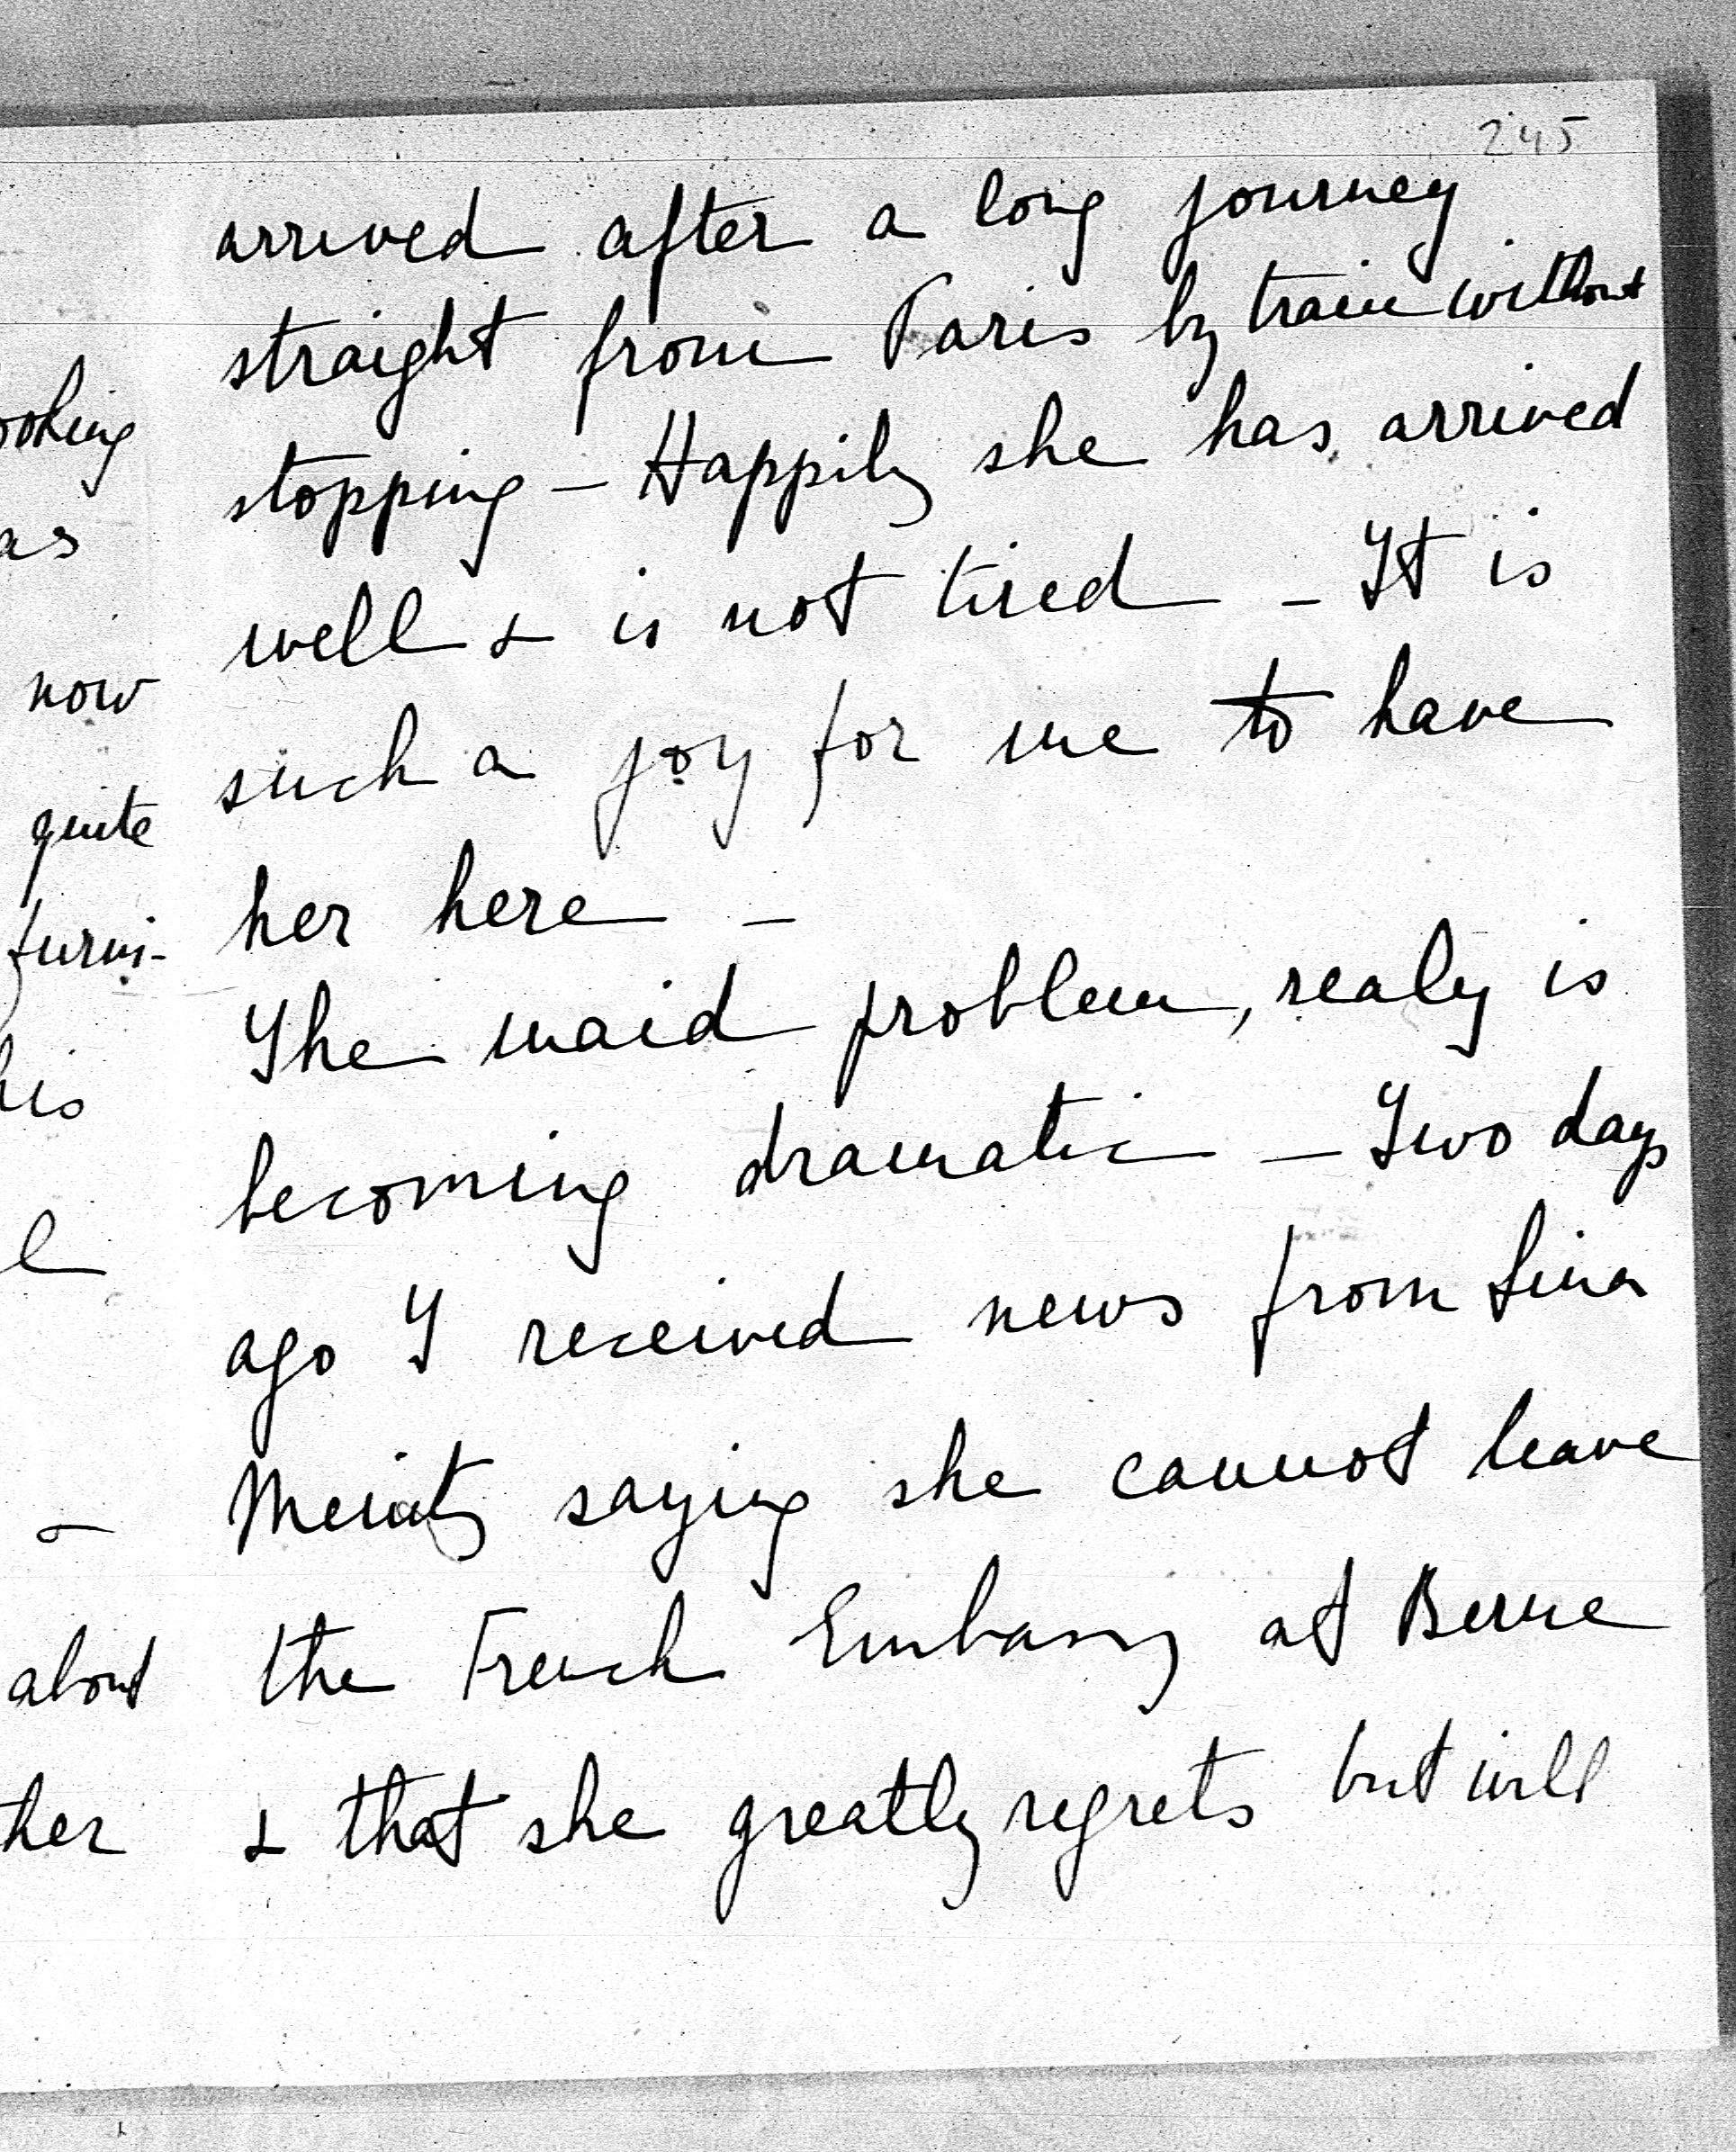 245
arrived after a long journey
straight from Paris by train without
stopping – Happily she has arrived
well & is not tired – It is
such a joy for me to have
her here –
The maid problem, realy is
becoming dramatic – Two days
ago I received news from Lina
saying she cannot leave
the French Embassy at Berne
& that she greatly regrets but will
ooking
as
now
quite
furni-
his
&
about
ther